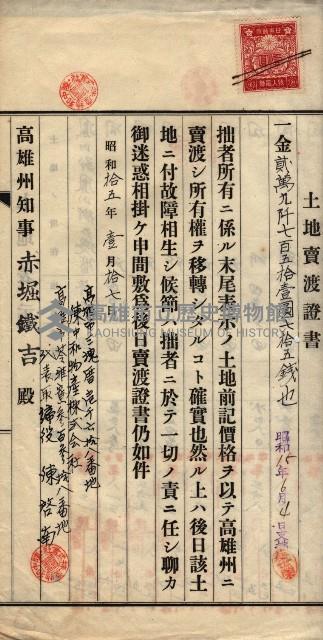 土地賣渡證書
一金貳萬九阡七百五拾壹圓七拾五錢也
昭和15年6月4日
拙者所有ニ係ル末尾表示ノ土地前記價格ヲ以テ高雄州ニ
賣渡シ所有權ヲ移轉シタルコト確實也然ル上ハ後日該土
地ニ付故障相生シ候節ハ拙者ニ於テ一切ノ責ニ任シ聊カ
御迷惑相掛ケ申間敷爲後日賣渡證書仍如件
昭和拾五年壹月拾七日
高雄市三塊厝
陳中和物產株式會社
高雄市苓雅寮
代表取締役 陳啓南
高雄州知事 赤堀鐵吉 殿
高雄市立歷史博物館
KAOHSIUNG MUSEUM OF HISTORY